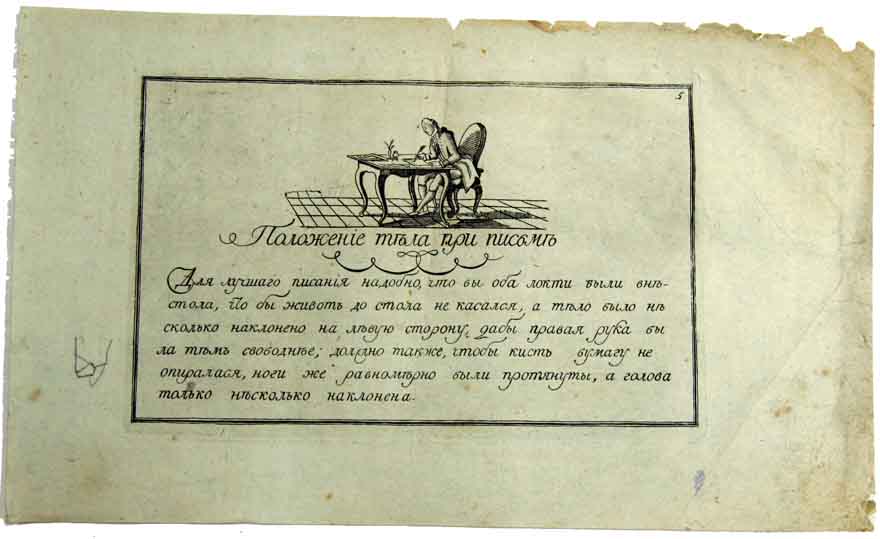 5
Положенїе тѣла при письмѣ
Для лучшаго писанїя надобно, что бы оба локти были внѣ-
стола, что бы животъ до стола не касался, а тѣло было нѣ
сколько наклонено на лѣвую сторону, дабы правая рука бы
ла тѣмъ свободнѣе; должно также, чтобы кисть бумагу не
опиралася, ноги же равномѣрно были протянуты, а голова
только нѣсколько наклонена.